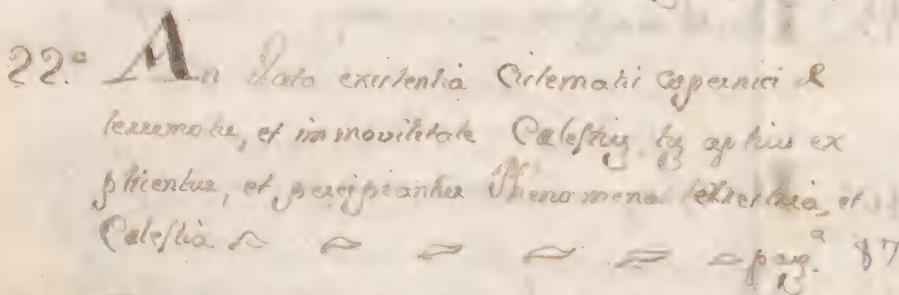 22.ª An dato existentiâ Cistematis Copernici &
terremotu, et immovilitate Cælestiũ, tũ aptius ex
plicentur, et percipiantur Phenomena terrestria, et
Cælestia pag.ª 87